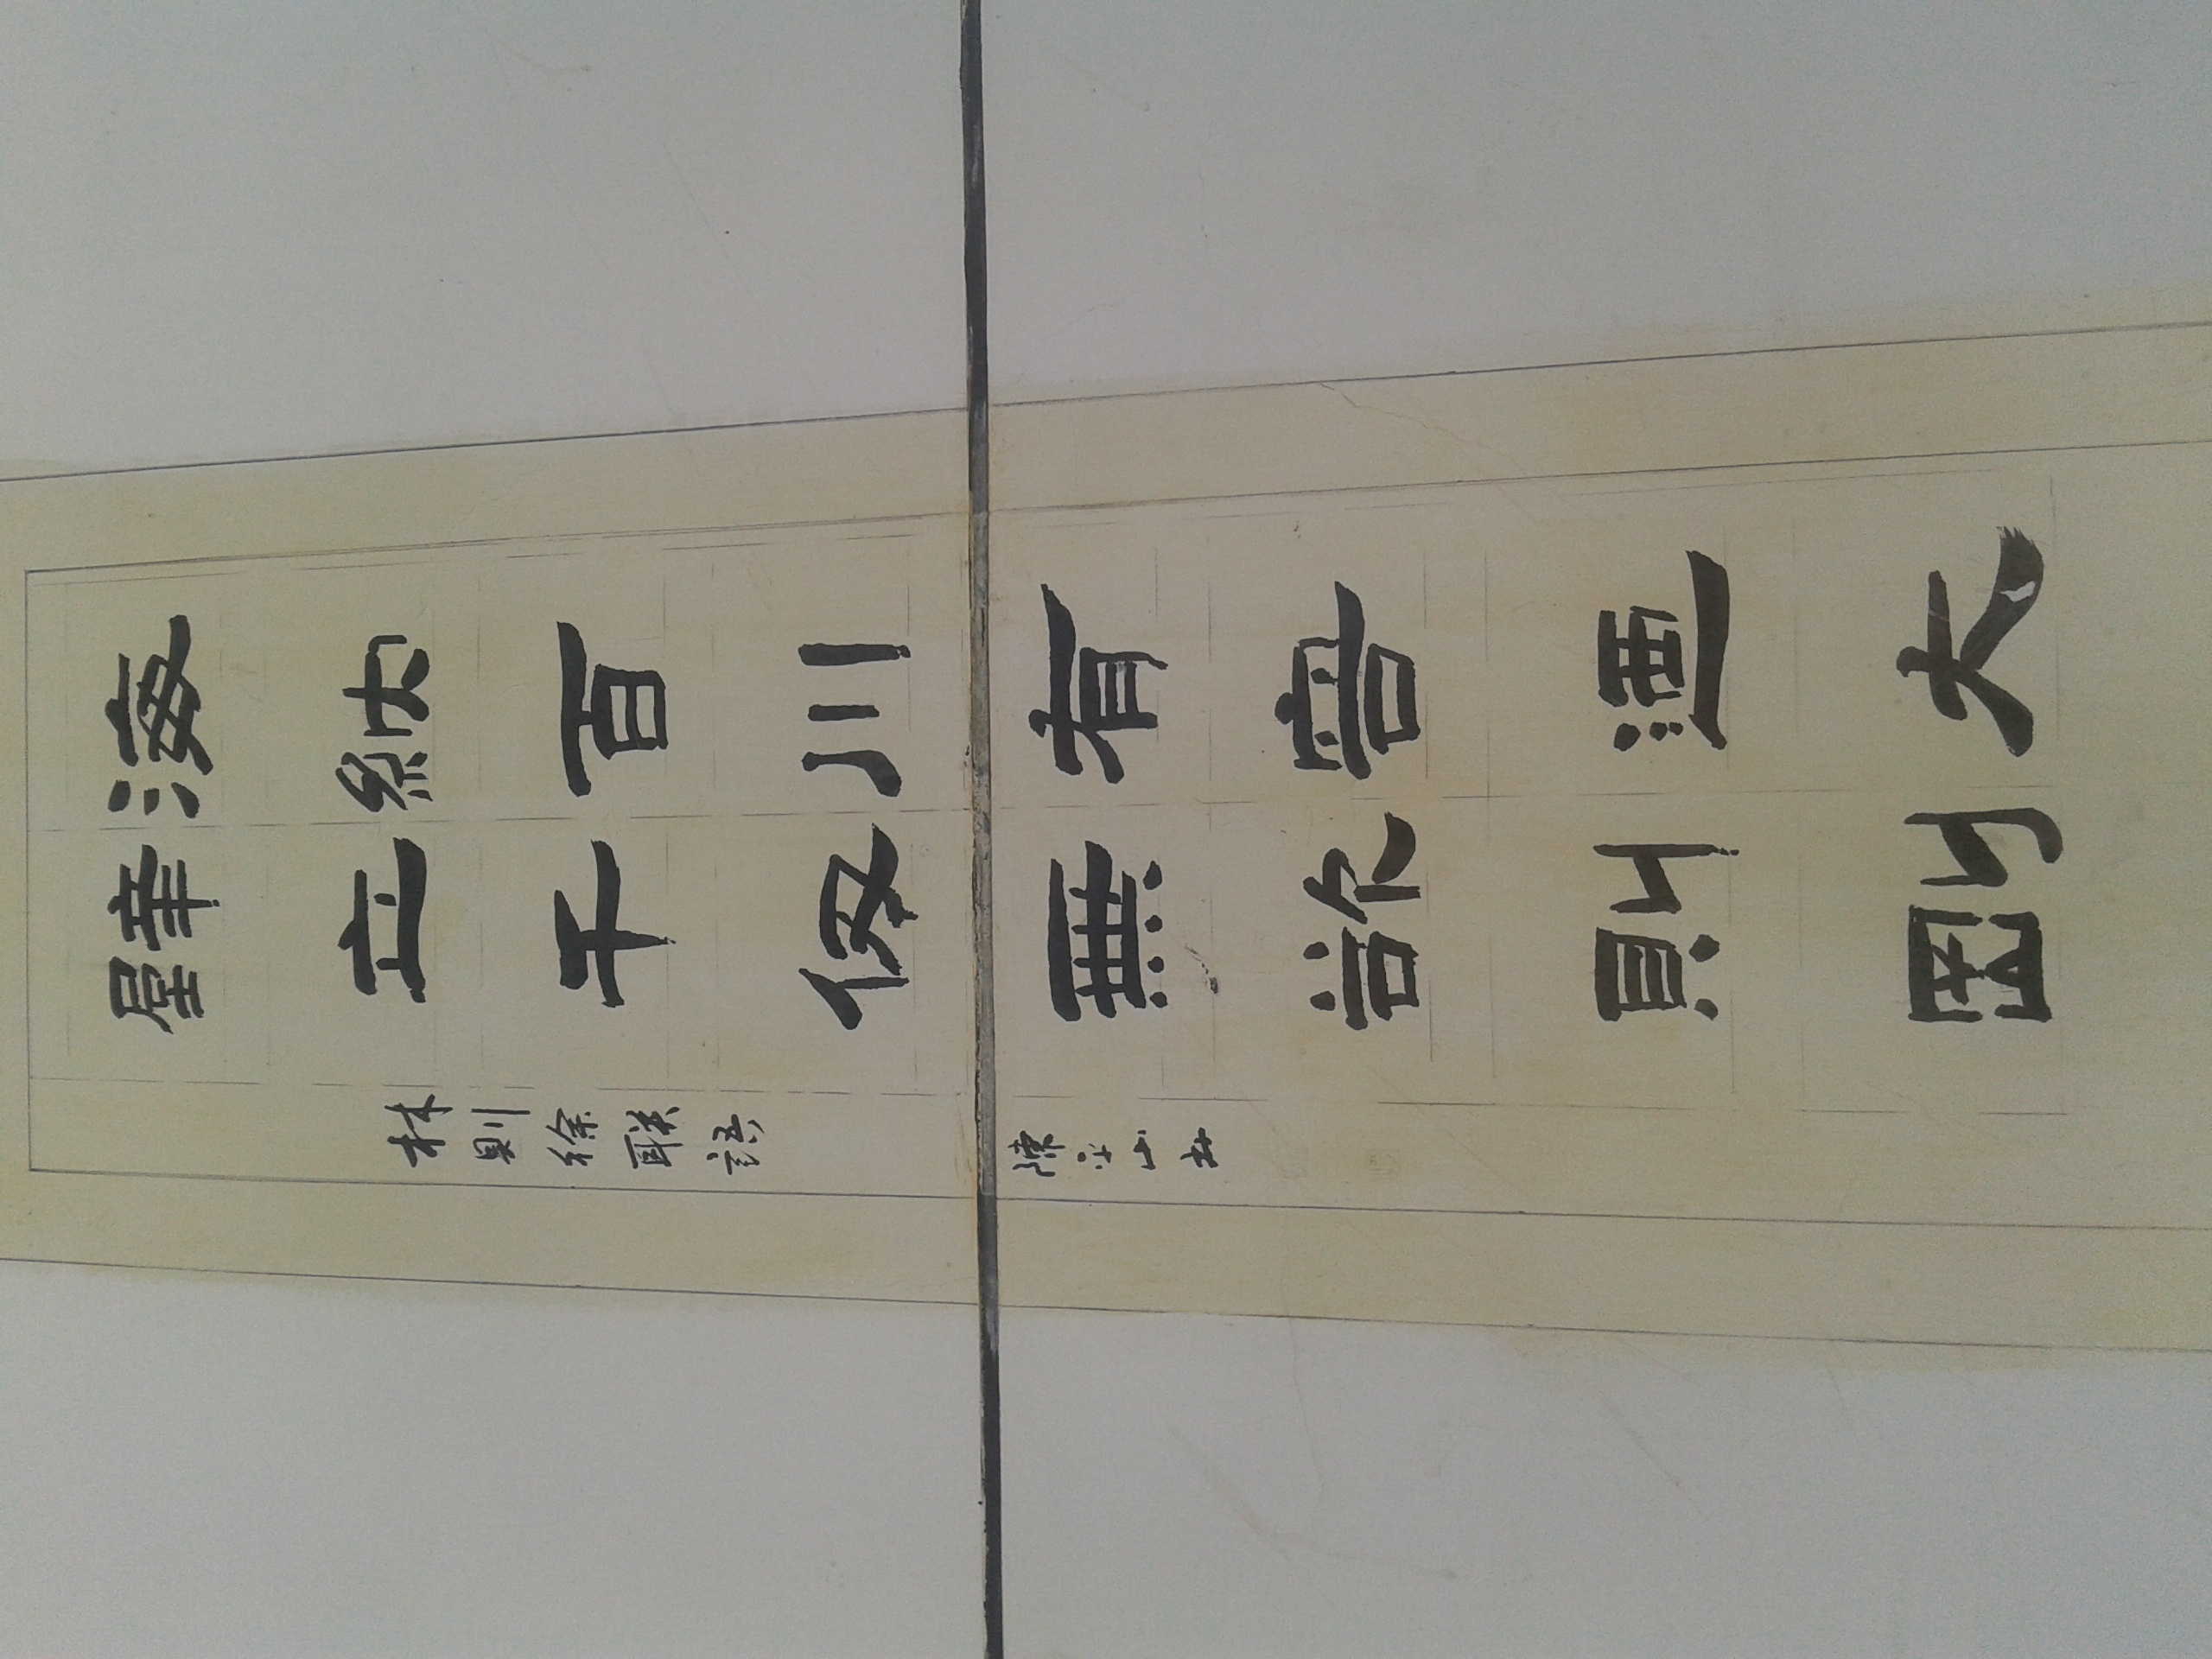 海納百川有容迺大
壁立千仞無欲則剛
林則徐联語
陳 山